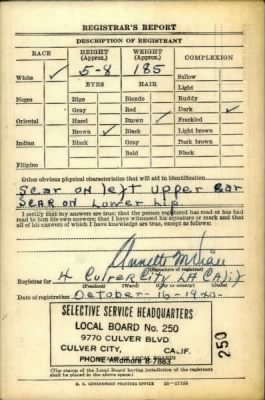 REGISTRAR'S REPORT
DESCRIPTION OF REGISTRANT
RACE HEIGHT (Approx.) WEIGHT (Approx.) COMPLEXION
White ✓ 5-8 185 Sallow
EYES HAIR Light
Negro Blue Blonde Ruddy
Gray Red Dark ✓
Oriental Hazel Brown ✓ Freckled
Brown ✓ Black Light brown
Indian Black Gray Dark brown
Bald Black
Filipino
Other obvious physical characteristics that will aid in identification
Scar on left upper ear
Scar on Lower Lip
I certify that my answers are true; that the person registered has read or has had
read to him his own answers; that I have witnessed his signature or mark and that
all of his answers of which I have knowledge are true, except as follows:
Annette
(Signature of registrar)
Registrar for 4 Culver City LA Calif
(Precinct) (Ward) (City or county) (State)
Date of registration October-16-1940-
SELECTIVE SERVICE HEADQUARTERS
LOCAL BOARD No. 250
9770 CULVER BLVD.
CULVER CITY, CALIF.
PHONE ARdmore 8-7883
250
(The stamp of the Local Board having jurisdiction of the registrant
shall be placed in the above space.)
U. S. GOVERNMENT PRINTING OFFICE 16-17105